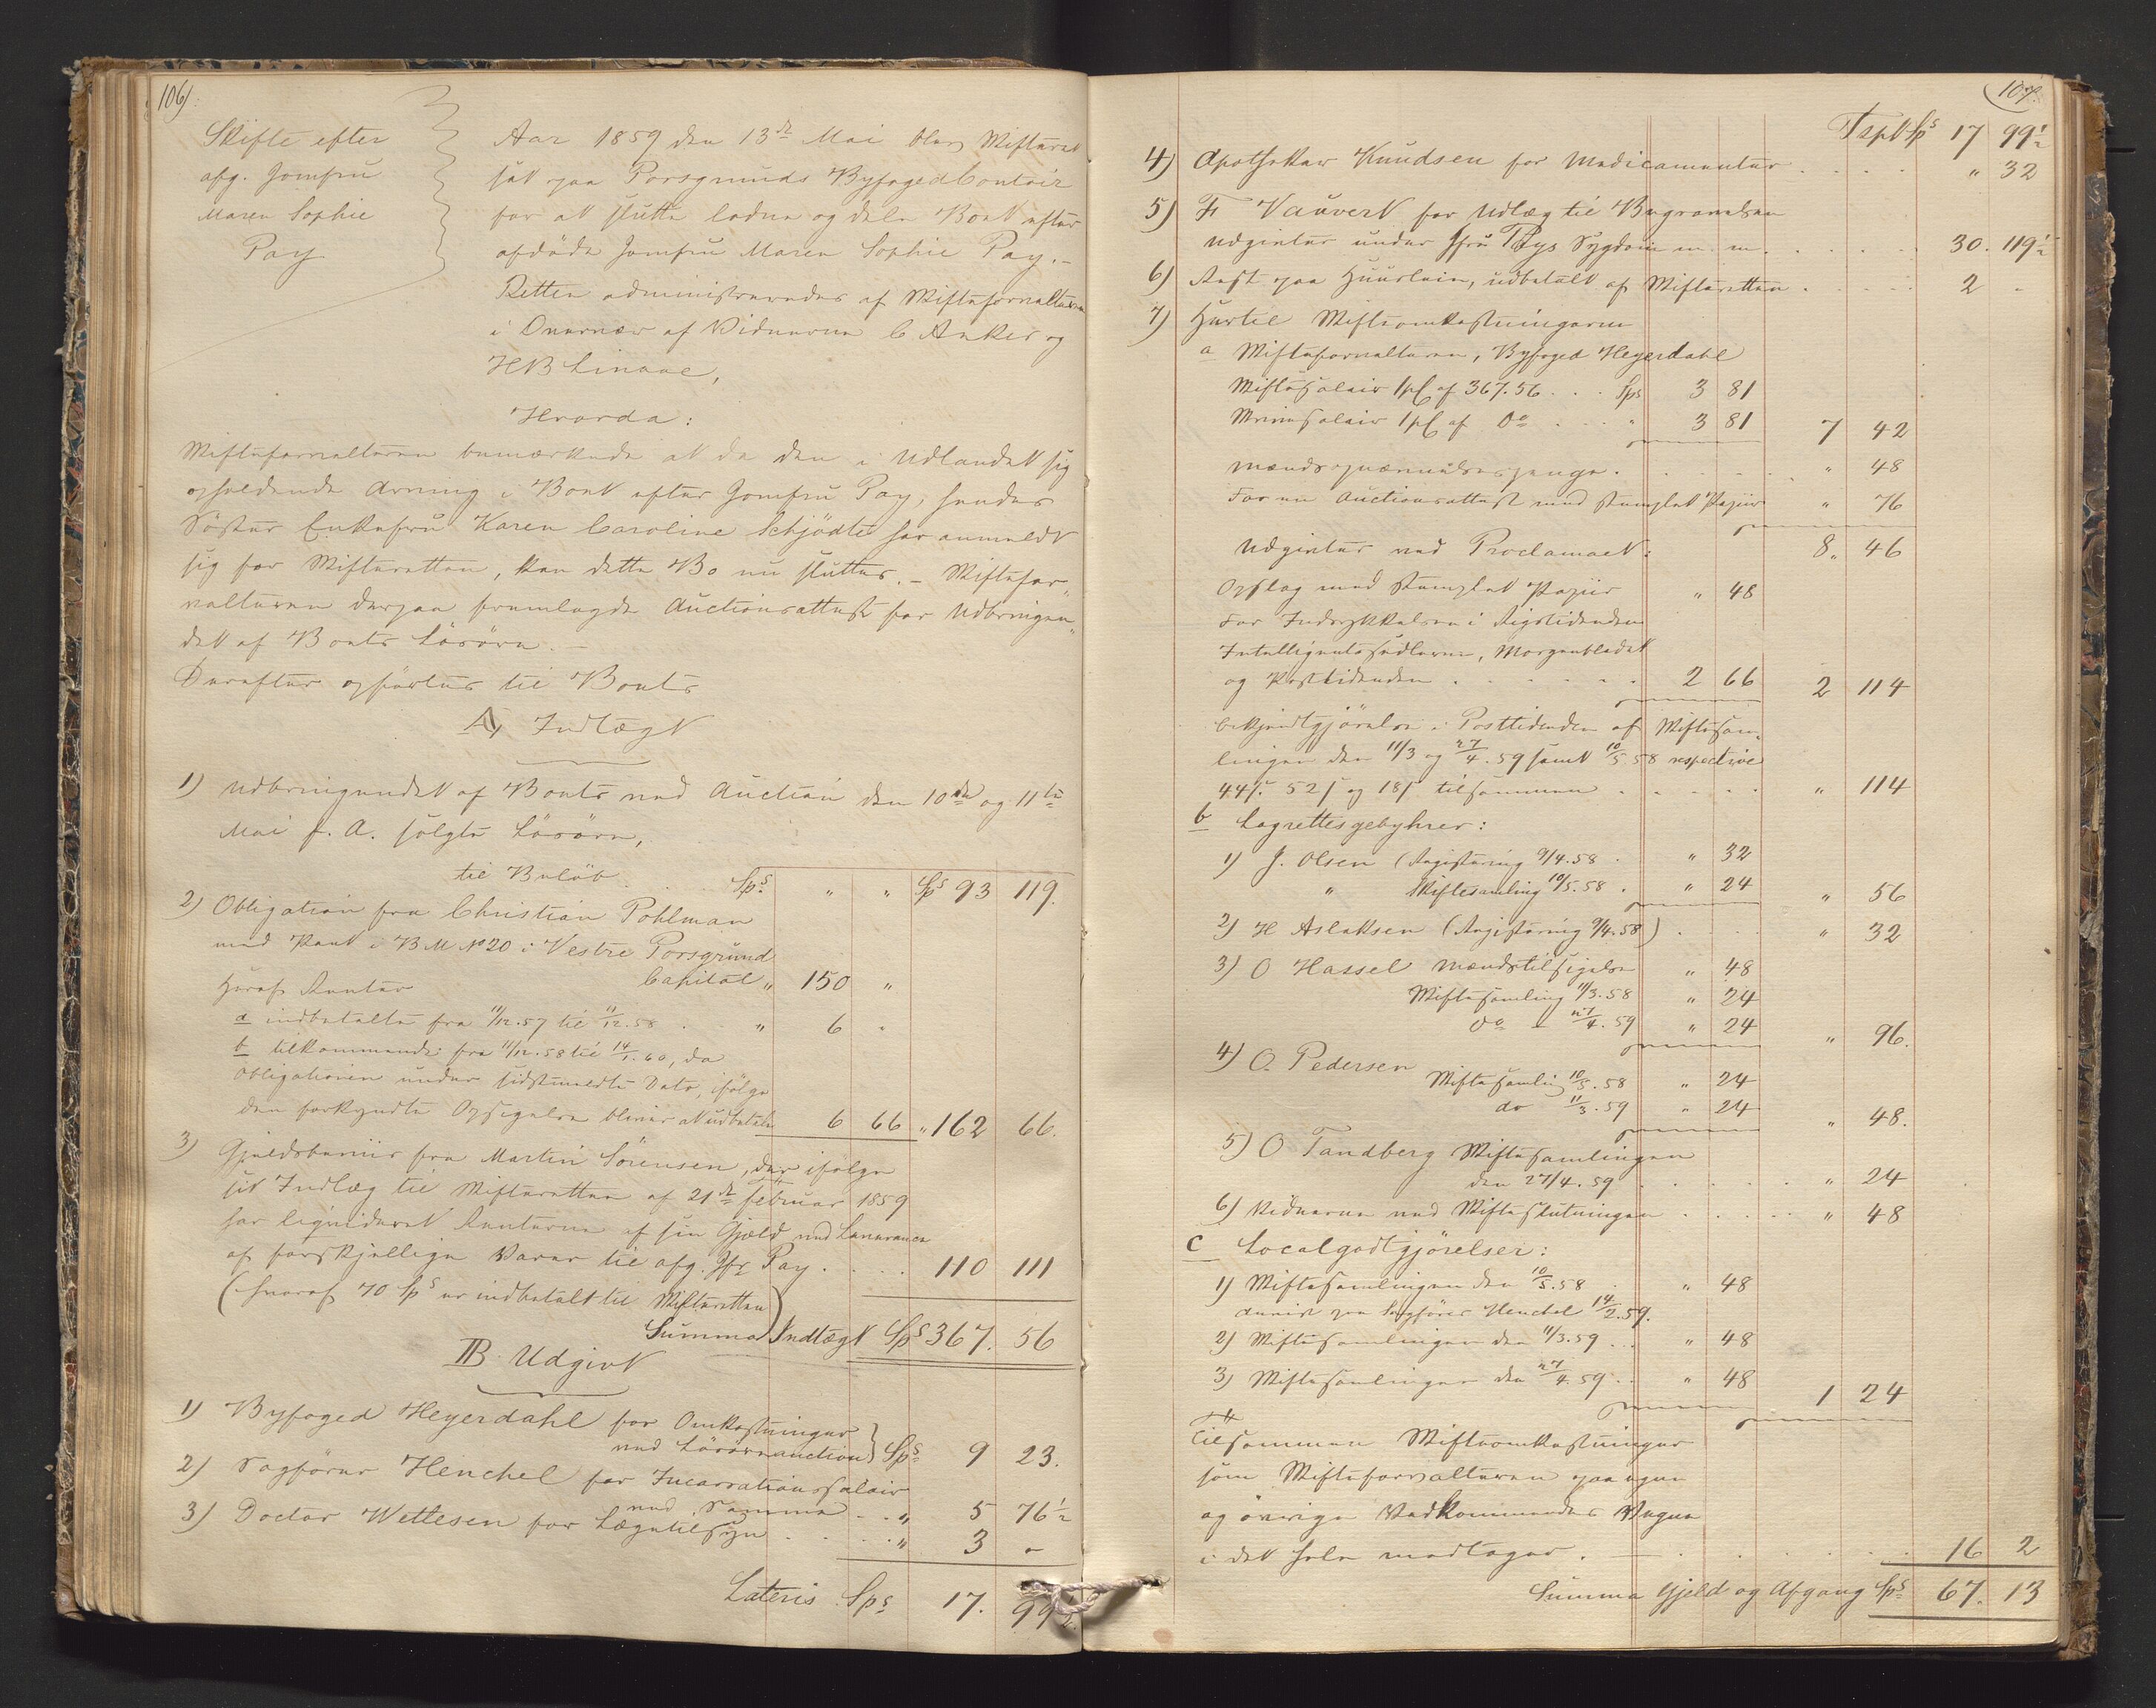 106)
Skifte efter
afg. Jomfru
Maren Sophie
Pay
Aar 1859 den 13de Mai blev Skifteret
sat paa Porsgrunds ByfogedContoir
for at slutte lodne og dele Boet efter
afdöde Jomfru Maren Sophie Pay. –
Retten administreredes af Skifteforvalteren
i Overvær af Vidnerne C Anker og
HB Linaae,
Hvorda:
Skifteforvalteren bemærkede at da den i Udlandet sig
opholdende Arving i Boet efter Jomfru Pay, hendes
Söster Enkefru Karen Caroline Schjödte har anmeldt
sig for Skifteretten, kan dette Bo nu sluttes. – Skiftefor„
valteren derpaa fremlagde Auctionsattest for Udbringen„
det af Boets Lösöre. –
Derefter opförtes til Boets
A, Indtægt
1) Udbringendet af Boets ved Auction den 10de og 11te
Mai f. A. solgte Lösöre,
til Belöb . . Sps „ „ Sps 93 119.
2) Obligation fra Christian Pohlman
med Pant i BM No 20 i Vestre Porsgrund
Capital „ 150 „
Heraf Renter
a indbetalte fra 11/12.57 til 11/12.58 . . „ 6 „
b tilkommende fra 11/12.58 til 14/1.60, da
Obligationen under sidstmeldte Dato, ifölge
den forkyndte Opsigelse bliver at udbetale 6 66 „ 162 66.
3) Gjeldsbeviis fra Martin Sörensen, der ifölge
sit Indlæg til Skifteretten af 21de Februar 1859
har liqvideret Renterne af sin Gjæld ved Leverance
af forskjellige Varer til afg. Jfr Pay . . . . 110 111
(hvoraf 70 Sps er indbetalt til Skifteretten)
Summa Indtægt Sps 367. 56
B Udgivt
1) Byfoged Heyerdahl for Omkostninger
ved Lösöreauction} Sps 9 23.
2) Sagförer Henchel for Incassationssalair
ved Samme . . „ 5 76½
3) Doctor Wettesen for Lægetilsyn . . . „ 3 „
Lateris Sps 17. 99½
107.
Tspt Sps 17 99½
4) Apotheker Knudsen for Medicamenter . . . . „ 32
5) F Vauvert for Udlæg til Begravelsen
Udgivter under Jfru Pays Sygdom m. m. . . . . 30. 119½
6) Rest paa Huusleie, udbetalt af Skifteretten . . . . 2 „
7) Hertil Skifteomkostningerne
a Skifteforvalteren, Byfoged Heyerdahl
Skiftesalair 1 pC af 367.56 . . . Sps 3 81
Skriversalair 1 pC af Do . . . „ 3 81 7 42
Mændsopnævnelsespenge . . . . . „ 48
For en Auctionsattest med stemplet Papiir „ 76
8„ 46
Udgivter ved Proclamaet:
Opslag med stemplet Papiir „ 48
For Indrykkelsen i Rigstidenden
Intelligentssedlerne, Morgenbladet
og Posttidenden . . . . . . 2 66 2 114
Bekjendtgjörelse i Posttidenden af Skiftesam„
lingen den 11/3 og 27/4.59 samt 10/5.58 respective
44 s. 52 s og 18 s tilsammen . . . . . „ 114
b Lagrettesgebyhrer:
1) J. Olsen (Registering 9/4.58 . „ 32
„ Skiftesamling 10/5.58 . „ 24 „ 56
2) H Aslaksen (Registering 9/4.58) . . . „ 32
3) O Hassel Mændstilsigelse „ 48
Skiftesamling 11/3.58 „ 24
do – 27/4.59 „ 24 „ 96.
4) O. Pedersen
Skiftesamling 10/5.58 „ 24
do 11/3.59 „ 24 „ 48.
5) O Tandberg Skiftesamlingen
den 27/4.59 . . . . . „ 24
6) Vidnerne ved Skifteslutningen . . . . . „ 48
c Localgodtgjörelser:
1) Skiftesamlingen den 10/5.58 . „ 48
Anviist paa Sagförer Henchel 14/2.59.
2) Skiftesamlingen den 11/3.59 . . . „ 48
3) Skiftesamlingen den 27/4.59 . . „ 48 1 24
Tilsammen Skifteomkostninger
som Skifteforvalteren paa egne
og övrige Vedkommendes Vegne
i det hele modtager . — . . . . . . 16 2
Summa Gjeld og Afgang Sps 67. 13